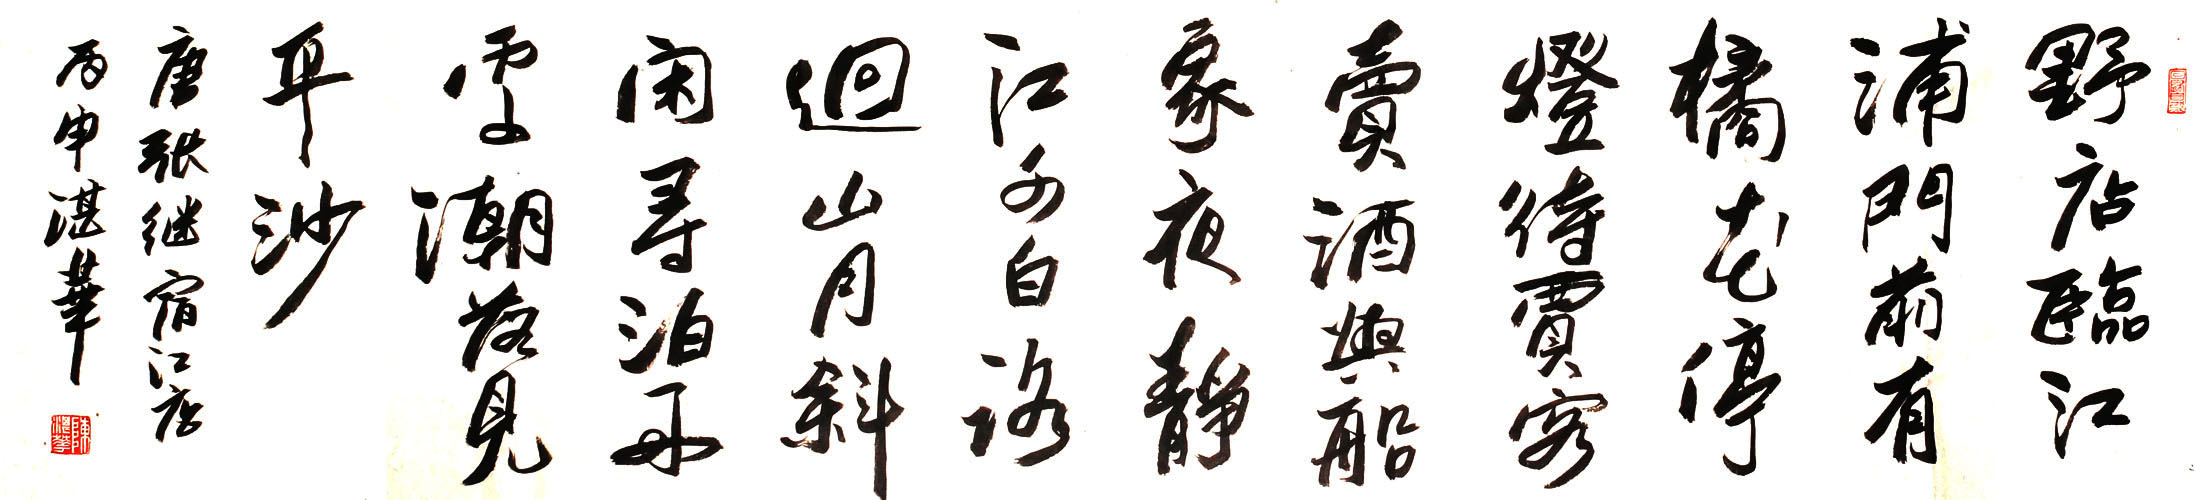 野店臨江
浦門前有
橘花停
燈待賈客
賣酒與船
家夜靜
江水白路
迴山月斜
閑尋泊舟
處潮落見
平沙
唐張继宿江店
丙申湛華
陳湛華